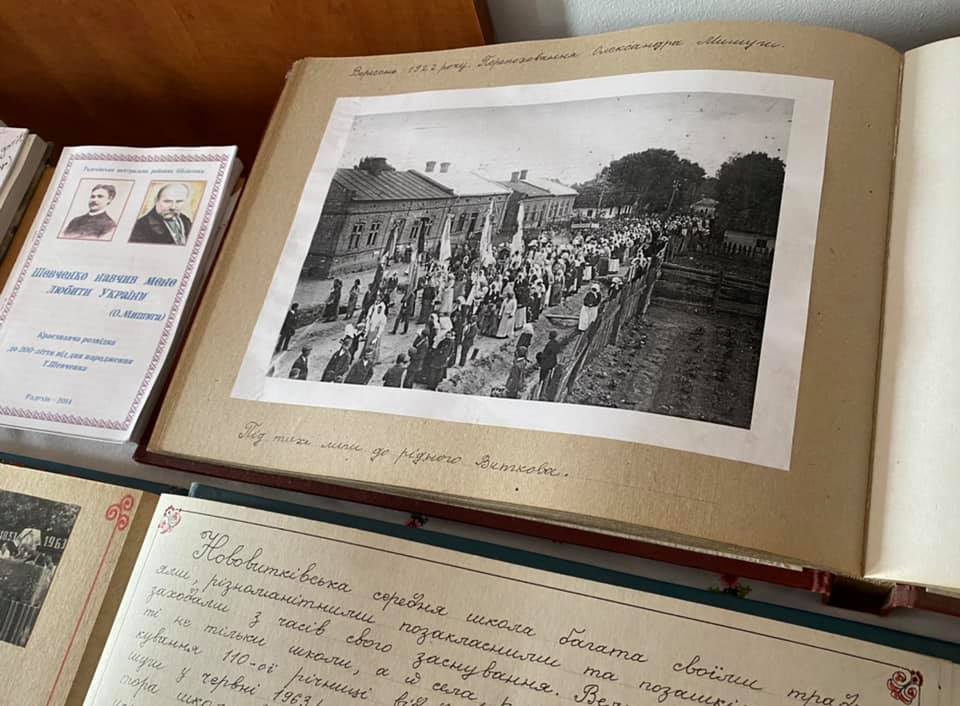 Вересень 1922 року. Перепоховання Олександра Мишуги.
Під тихі липи до рідного Виткова.
Радехівська центральна районна бібліотека
Шевченко навчив мене
любити Україну
(О.Мишуга)
Краєзнавча розвідка
до 200-ліття від дня народження
Т.Шевченка
Радехів – 2014
1853 1963
Нововитківська середня школа багата своїми трад
ями, різноманітними позакласними та позашкі
заходами з часів свого заснування.
ті не тільки школи, а й села
кування 110-ої річниці від
шуги у червні 1963
тора шко